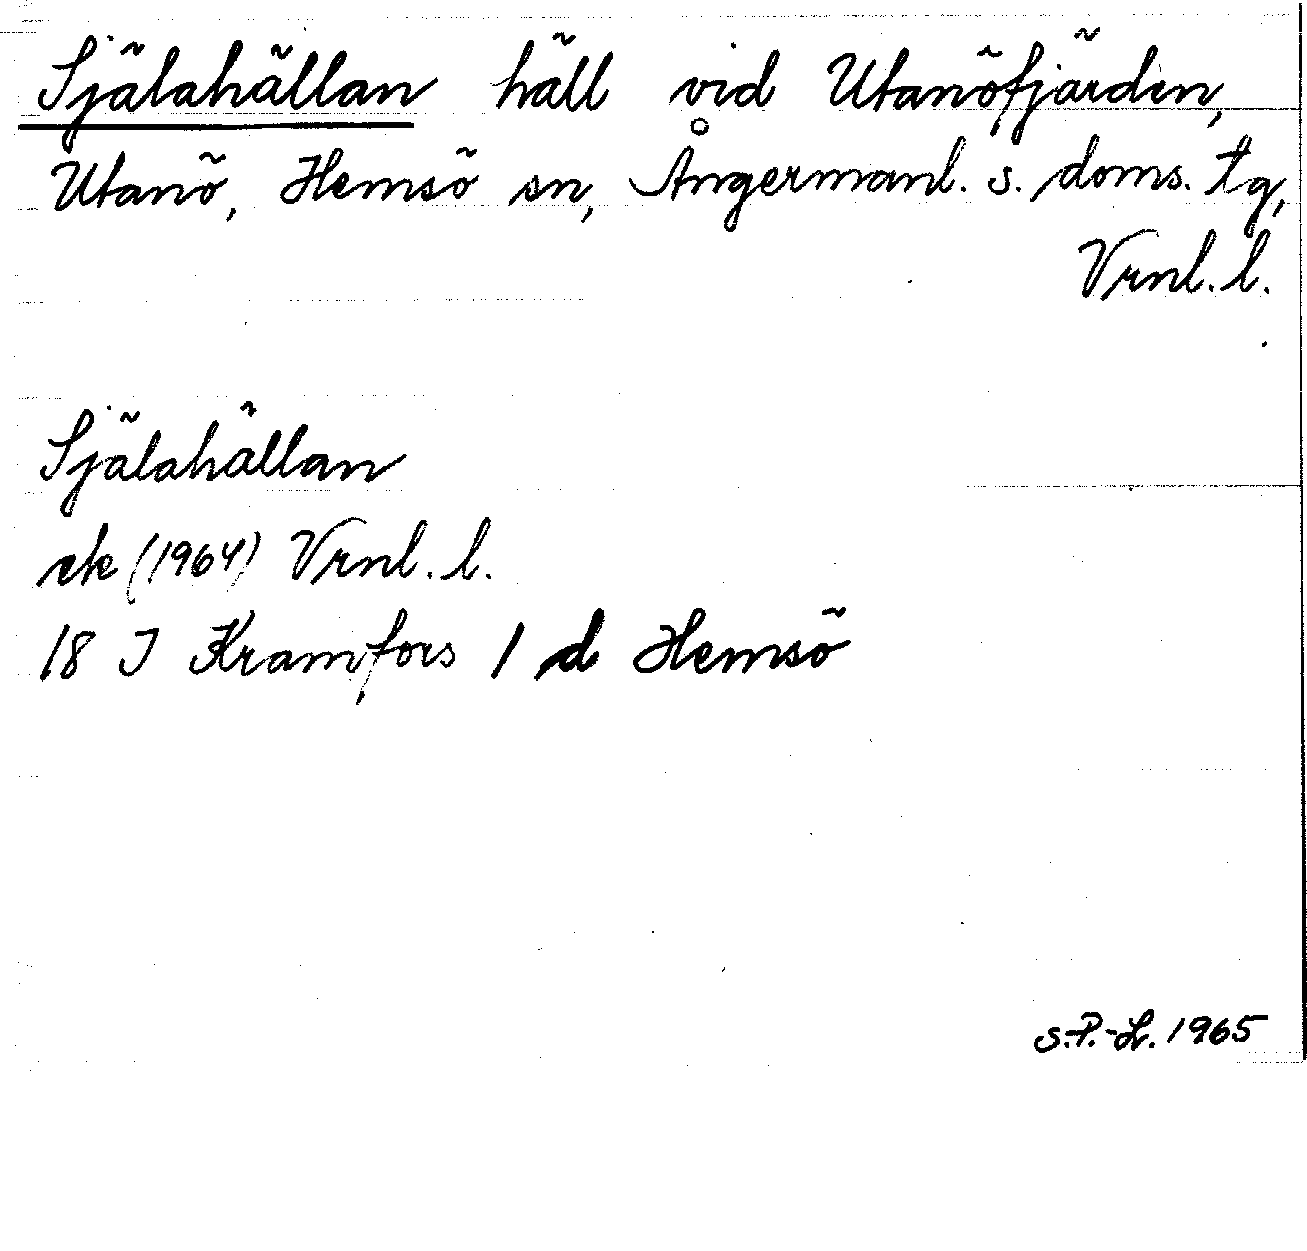 Själahällan häll vid Utanöfjärden,
Utanö, Hemsö sn, Ångermanl. s. doms. tg,
Vrnl. l.
Själahällan
ek (1964) Vrnl. l.
18 I Kramfors 1 d Hemsö
S.P.-L. 1965